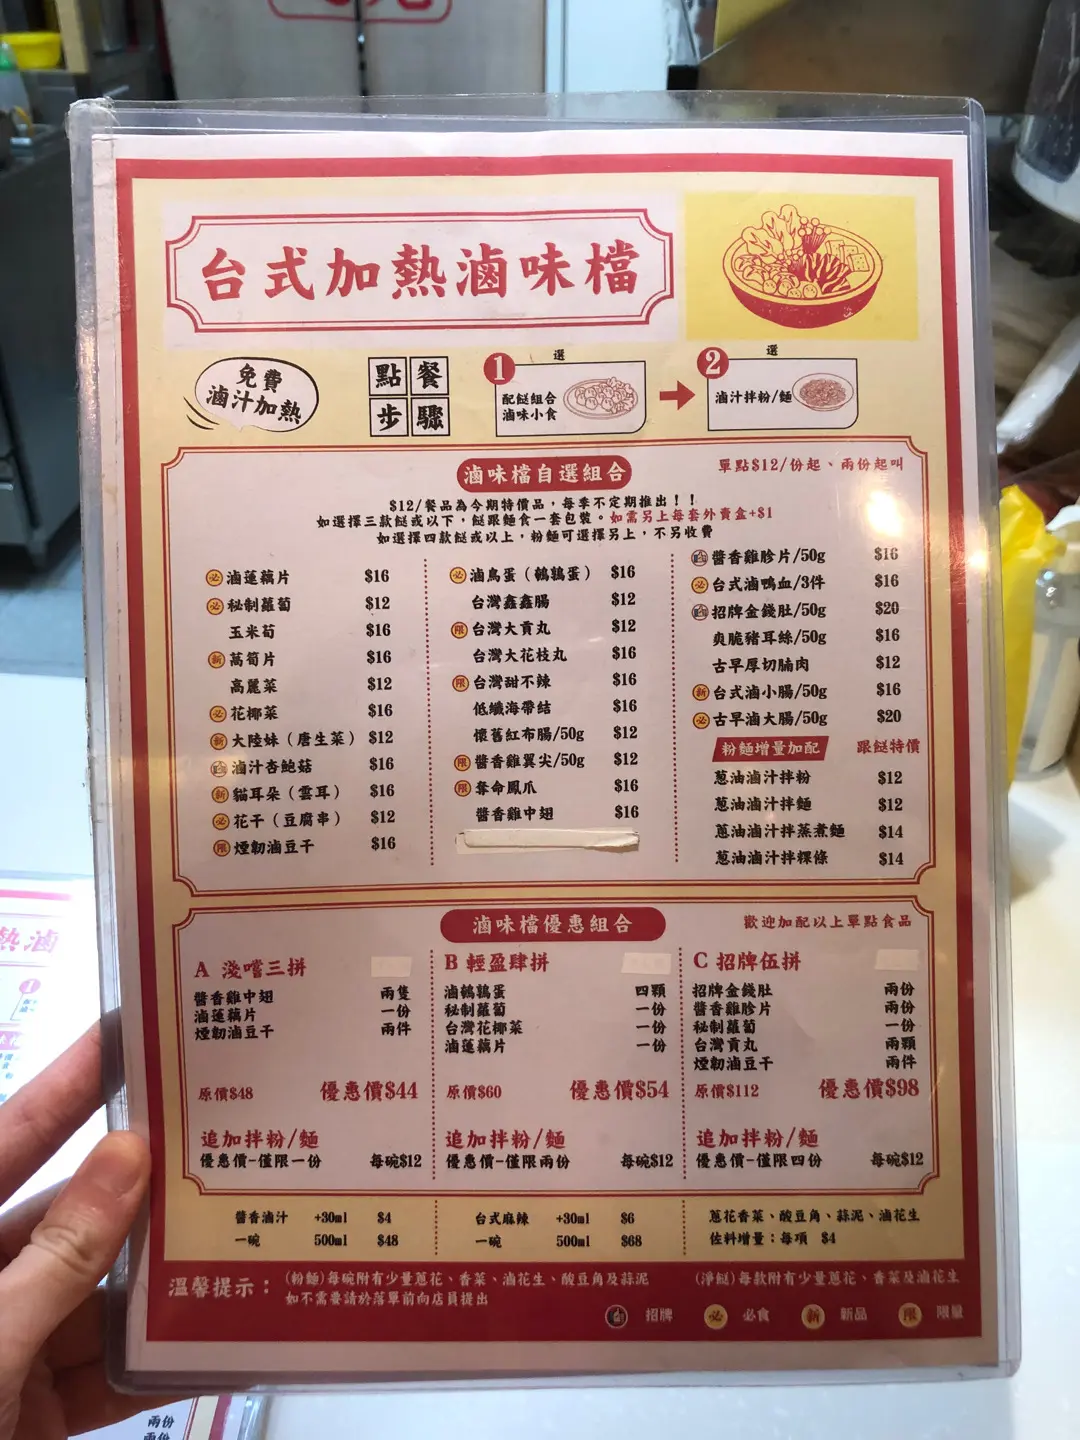 台式加熱滷味檔
免費
滷汁加熱
點餐
步驟
1
選
配餸組合
滷味小食
2
選
滷汁拌粉/麵
滷味檔自選組合
單點$12/份起、兩份起叫
$12/餐品為今期特價品，每季不定期推出！！
如選擇三款餸或以下，餸跟麵食一套包裝。如需另上每套外賣盒+$1
如選擇四款餸或以上，粉麵可選擇另上，不另收費
必 滷蓮藕片 $16
必 秘制蘿蔔 $12
玉米荀 $16
新 萵筍片 $16
高麗菜 $12
必 花椰菜 $16
新 大陸妹（唐生菜） $12
滷汁杏鮑菇 $16
新 貓耳朵（雲耳） $16
必 花干（豆腐串） $12
限 煙韌滷豆干 $16
必 滷鳥蛋（鵪鶉蛋） $16
台灣鑫鑫腸 $12
限 台灣大貢丸 $12
台灣大花枝丸 $16
限 台灣甜不辣 $16
低纖海帶結 $16
懷舊紅布腸/50g $12
限 醬香雞翼尖/50g $12
限 奪命鳳爪 $16
醬香雞中翅 $16
醬香雞胗片/50g $16
必 台式滷鴨血/3件 $16
招牌金錢肚/50g $20
爽脆豬耳絲/50g $16
古早厚切腩肉 $12
新 台式滷小腸/50g $16
必 古早滷大腸/50g $20
粉麵增量加配 跟餸特價
蔥油滷汁拌粉 $12
蔥油滷汁拌麵 $12
蔥油滷汁拌蒸煮麵 $14
蔥油滷汁拌粿條 $14
滷味檔優惠組合
歡迎加配以上單點食品
A 淺嚐三拼
醬香雞中翅 兩隻
滷蓮藕片 一份
煙韌滷豆干 兩件
原價$48 優惠價$44
追加拌粉/麵
優惠價-僅限一份 每碗$12
B 輕盈肆拼
滷鵪鶉蛋 四顆
秘制蘿蔔 一份
台灣花椰菜 一份
滷蓮藕片 一份
原價$60 優惠價$54
追加拌粉/麵
優惠價-僅限兩份 每碗$12
C 招牌伍拼
招牌金錢肚 兩份
醬香雞胗片 兩份
秘制蘿蔔 一份
台灣貢丸 兩顆
煙韌滷豆干 兩件
原價$112 優惠價$98
追加拌粉/麵
優惠價-僅限四份 每碗$12
醬香滷汁 +30ml $4
一碗 500ml $48
台式麻辣 +30ml $6
一碗 500ml $68
蔥花香菜、酸豆角、蒜泥、滷花生
佐料增量：每項 $4
溫馨提示：
(粉麵)每碗附有少量蔥花、香菜、滷花生、酸豆角及蒜泥
如不需要請於落單前向店員提出
(淨餸)每款附有少量蔥花、香菜及滷花生
招牌 必 必食 新 新品 限 限量
熱滷
1
兩份
兩份